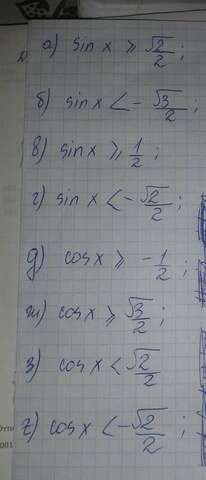 а) sin x ≥ √2/2 ;
б) sin x < - √3/2 ;
в) sin x ≥ 1/2 ;
г) sin x < - √2/2 ;
д) cos x ≥ - 1/2 ;
ж) cos x ≥ √3/2 ;
з) cos x < √2/2
г) cos x < - √2/2 ;